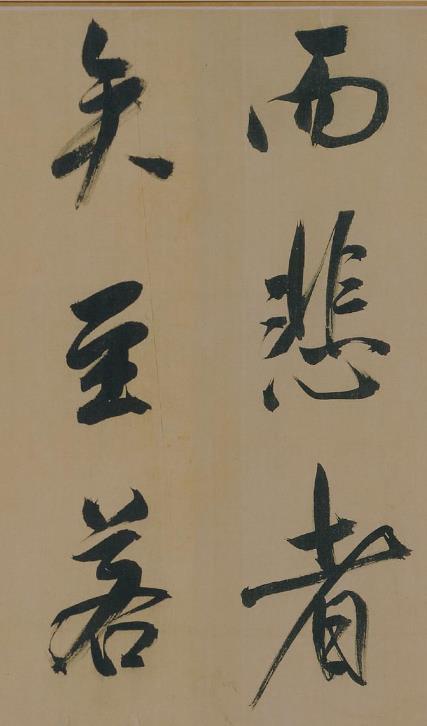 而悲者
矣至若